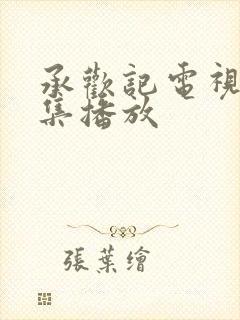 承歡記電視
集播放
張葉繪